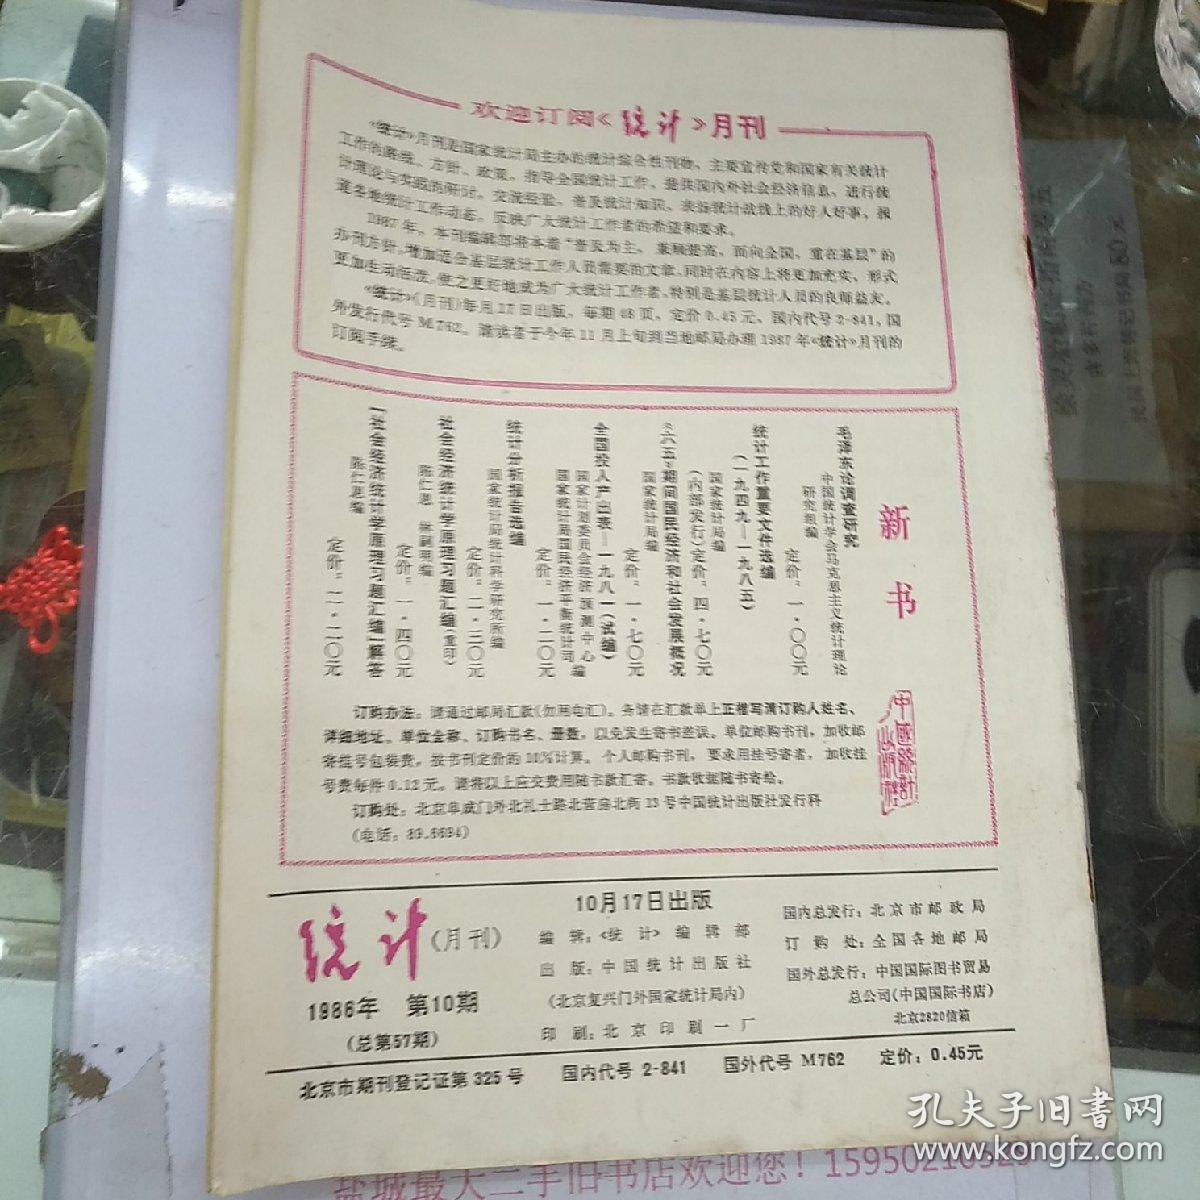 欢迎订阅《统计》月刊
《统计》月刊是国家统计局主办的统计综合性刊物，主要宣传党和国家有关统计
工作的路线、方针、政策，指导全国统计工作，提供国内外社会经济信息，进行统
计理论与实践的研讨，交流经验，普及统计知识，表扬统计战线上的好人好事，报
道各地统计工作动态，反映广大统计工作者的希望和要求。
1987年，本刊编辑部将本着“普及为主，兼顾提高，面向全国，重在基层”的
办刊方针，增加适合基层统计工作人员需要的文章，同时在内容上将更加充实，形式
更加生动活泼，使之更好地成为广大统计工作者、特别是基层统计人员的良师益友。
《统计》（月刊）每月17日出版，每期48页，定价0.45元，国内代号2-841，国
外发行代号M762。请读者于今年11月上旬到当地邮局办理1987年《统计》月刊的
订阅手续。
新书
毛泽东论调查研究
中国统计学会马克思主义统计理论
研究组编
定价：一·〇〇元
统计工作重要文件选编
（一九四九—一九八五）
国家统计局编
（内部发行）定价：四·七〇元
“六五”期间国民经济和社会发展概况
国家统计局编
定价：一·七〇元
全国投入产出表—一九八一（试编）
国家计划委员会经济预测中心
国家统计局国民经济平衡统计司 编
定价：一·二〇元
统计分析报告选编
国家统计局统计科学研究所编
定价：二·三〇元
社会经济统计学原理习题汇编（重印）
陈仁恩 编
定价：一·四〇元
《社会经济统计学原理习题汇编》解答
陈仁恩编
定价：二·二〇元
订购办法：请通过邮局汇款（勿用电汇）。务请在汇款单上正楷写清订购人姓名、
详细地址、单位全称、订购书名、册数，以免发生寄书差误。单位邮购书刊，加收邮
寄挂号包装费，按书刊定价的10%计算。个人邮购书刊，要求用挂号寄者，加收挂
号费每件0.12元。请将以上应交费用随书款汇寄。书款收据随书寄给。
订购处：北京阜成门外北礼士路北营房北街13号中国统计出版社发行科
（电话：89.6694）
中国统计出版社
统计（月刊）
1986年 第10期
（总第57期）
10月17日出版
编辑：《统计》编辑部
出版：中国统计出版社
（北京复兴门外国家统计局内）
印刷：北京印刷一厂
国内总发行：北京市邮政局
订购处：全国各地邮局
国外总发行：中国国际图书贸易
总公司（中国国际书店）
北京2820信箱
北京市期刊登记证第325号 国内代号 2-841 国外代号 M762 定价：0.45元
孔夫子旧书网
www.kongfz.com
盐城最大二手旧书店欢迎您！